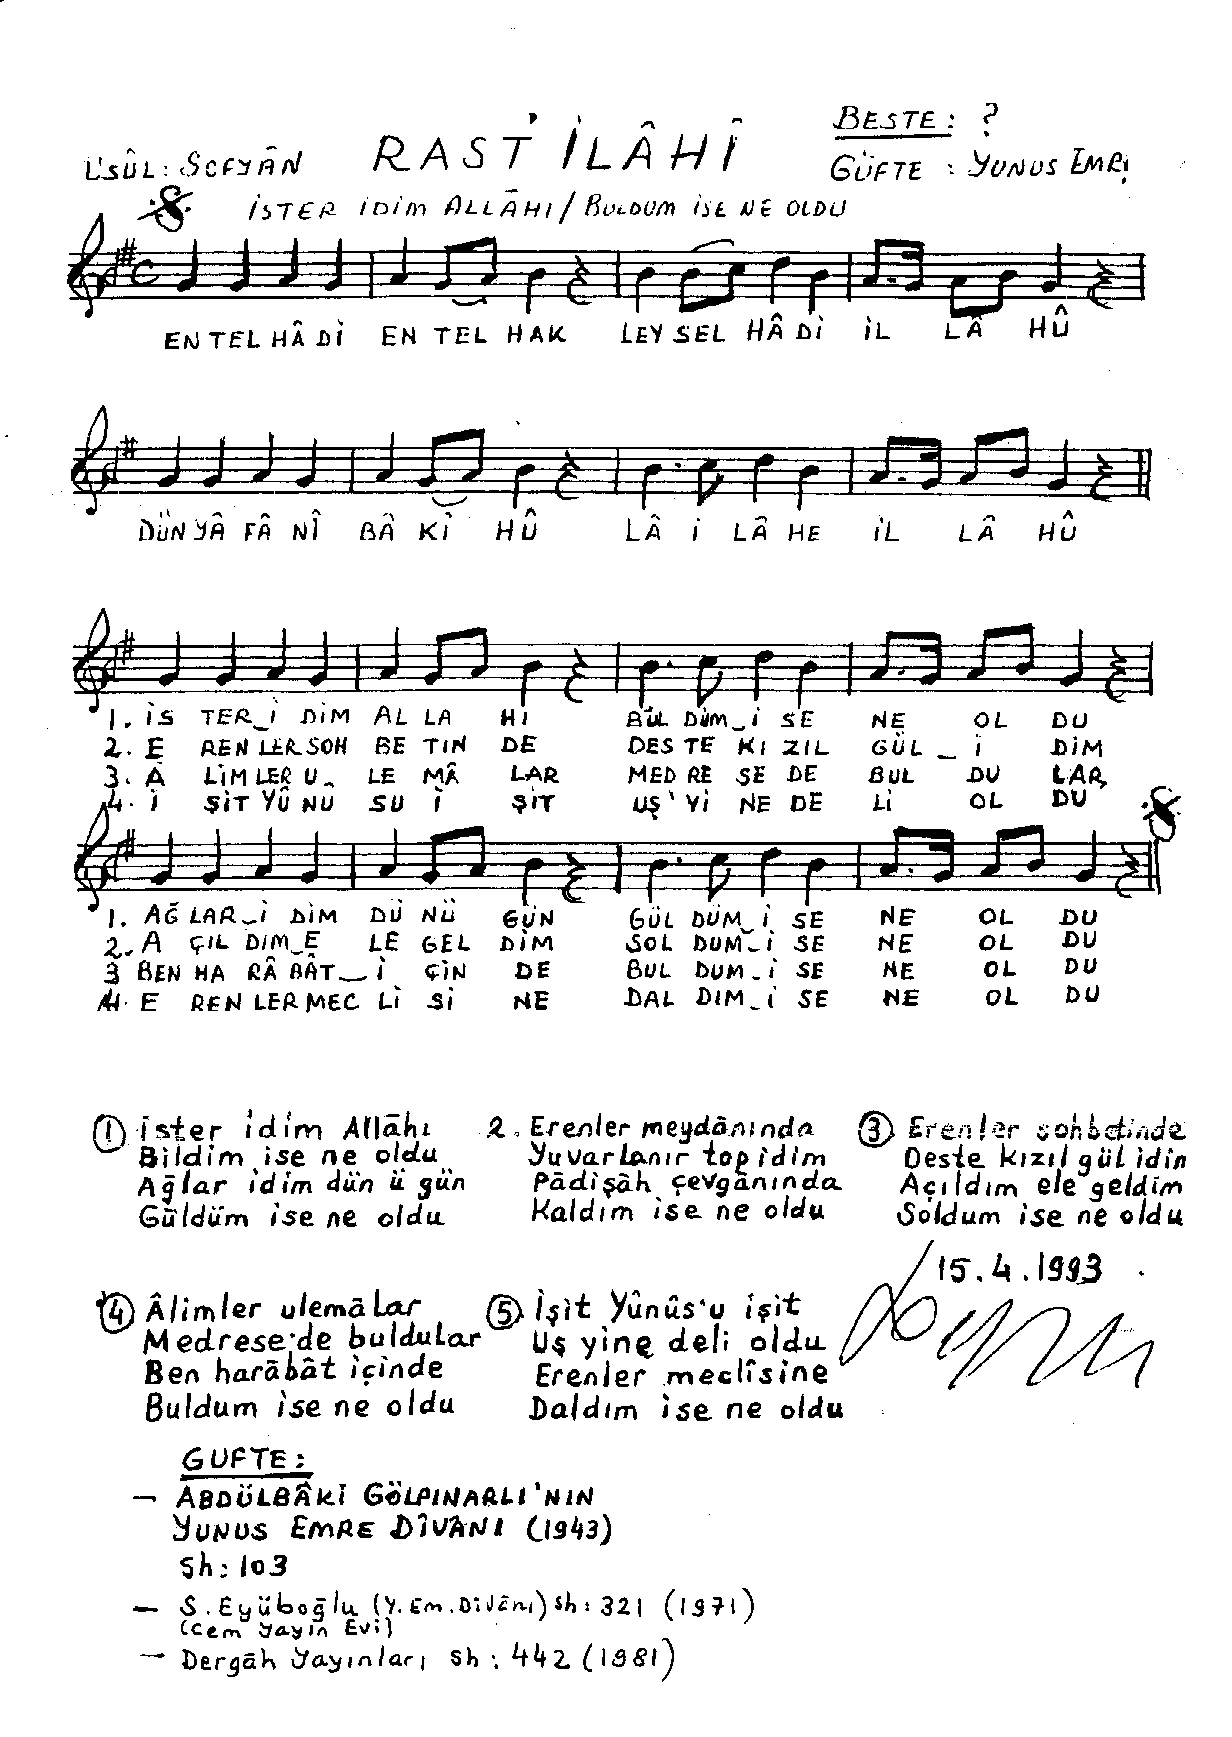 BESTE: ?
USÛL: SOFYÂN RAST İLÂHÎ GÜFTE: YUNUS EMRE
İSTER İDİM ALLĀHI / BULDUM İSE NE OLDU
EN TEL HÂ Dİ EN TEL HAK LEY SEL HÂ Dİ İL LÂ HÛ
DÜN YÂ FÂ NÎ BÂ Kİ HÛ LÂ İ LÂ HE İL LÂ HÛ
1. İS TER_İ DİM AL LA HI BUL DUM_İ SE NE OL DU
2. E REN LER SOH BE TİN DE DES TE KI ZIL GÜL_İ DİM
3. A LİM LER U_ LE MÂ LAR MED RE SE DE BUL DU LAR
4. İ ŞİT YÛ NÛ SU İ ŞİT UŞ' Yİ NE DE Lİ OL DU
1. AĞ LAR_İ DİM DÜ NÜ GÜN GÜL DÜM_İ SE NE OL DU
2. A ÇIL DIM_E LE GEL DİM SOL DUM_İ SE NE OL DU
3 BEN HA RÂ BÂT_İ ÇİN DE BUL DUM_İ SE NE OL DU
4. E REN LER MEC Lİ Sİ NE DAL DIM_İ SE NE OL DU
① İster idim Allāhı
Bildim ise ne oldu
Ağlar idim dün ü gün
Güldüm ise ne oldu
2. Erenler meydānında
Yuvarlanır top idim
Pādişāh çevgānında
Kaldım ise ne oldu
③ Erenler sohbetinde
Deste kızıl gül idin
Açıldım ele geldim
Soldum ise ne oldu
15.4.1993
④ Âlimler ulemālar
Medrese'de buldular
Ben harābât içinde
Buldum ise ne oldu
⑤ İşit Yûnûs'u işit
Uş yine deli oldu
Erenler meclîsine
Daldım ise ne oldu
GUFTE:
— ABDÜLBÂKİ GÖLPINARLI'NIN
YUNUS EMRE DÎVÂNI (1943)
Sh: 103
— S. Eyüboğlu (Y. Em. Dîvânı) Sh: 321 (1971)
(Cem Yayın Evi)
— Dergāh Yayınları Sh: 442 (1981)